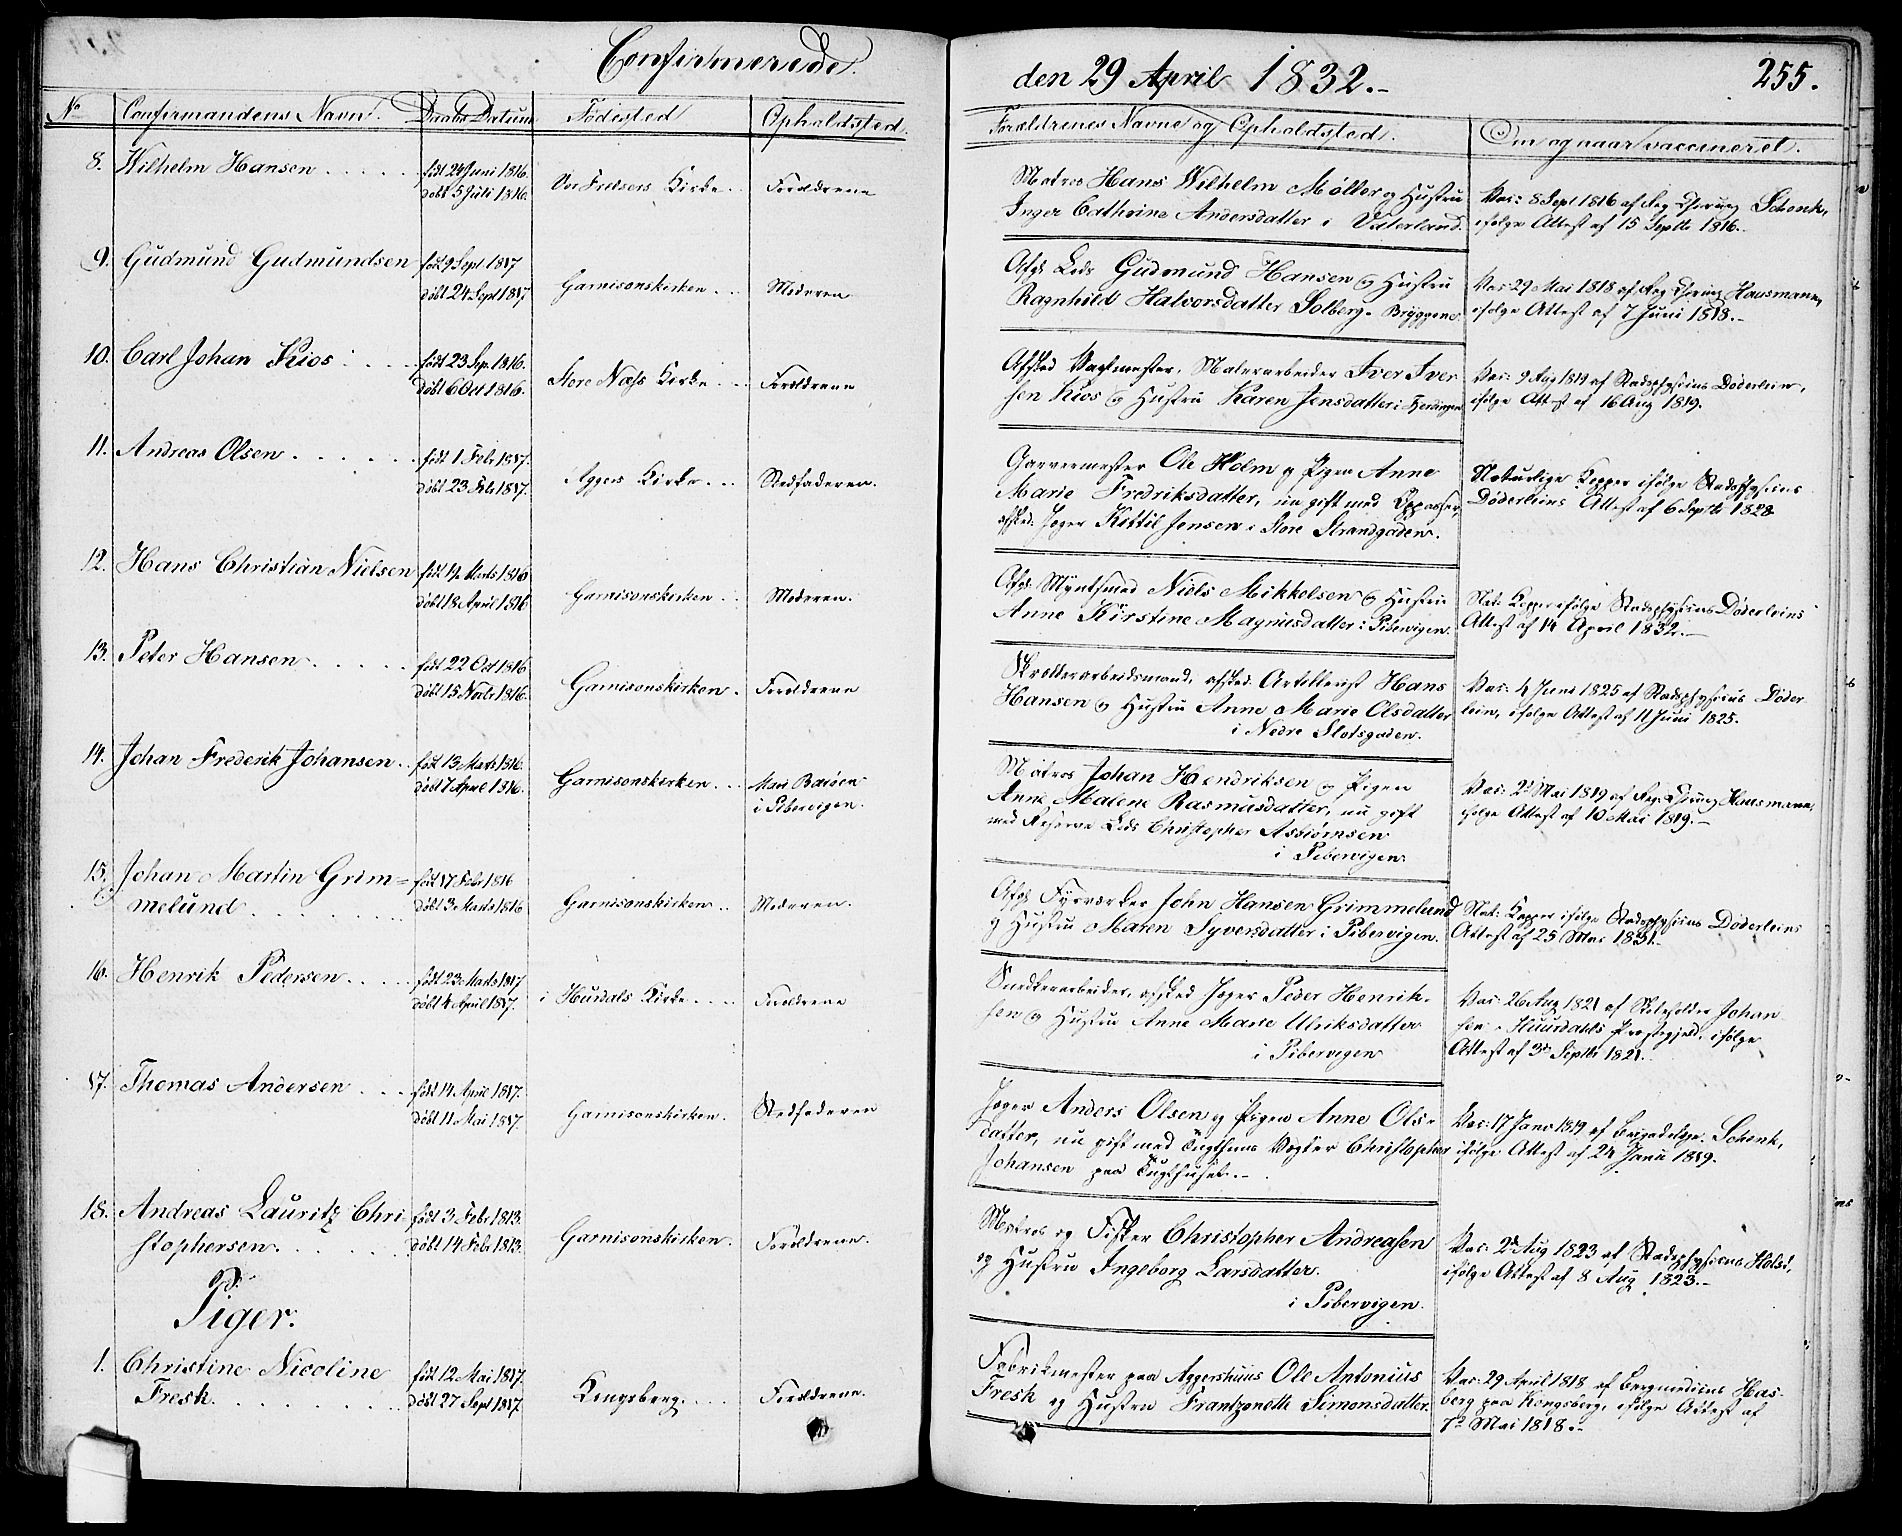 Confirmerede
den 29 April 1832.-
255.
No Confirmandens Navn. Daabs Datum Födested Opholdssted
Foreldrenes Navne og Opholdssted. Om og naar vaccineret.
8. Wilhelm Hansen . . . . . födt 24 Juni 1816. döbt 5 Juli 1816. Vor Frelsers Kirke . . Forældrene
Matros Hans Wilhelm Møller og Hustru
Inger Cathrine Andersdatter i Vaterland.
Vac: 8 Sept 1816 af Reg Chirurg Schenk,
ifølge Attest af 15 Septbr 1816.
9. Gudmund Gudmundsen födt 9 Sept 1817 döbt 24 Sept 1817 Garnisonskirken . . Moderen
Afgd. Lods Gudmund Hansen og Hustru
Ragnhild Halvorsdatter Solberg. Bryggene
Vac: 29 Mai 1818 af Reg Chirurg Hausmann,
ifølge Attest af 7 Juni 1818.-
10. Carl Johan Kios . . . . födt 23 Sep. 1816. döbt 6 Oct 1816. Store Næss Kirke . . Forældrene
Afsked Vagtmester, Malerarbeider Iver Iver
sen Kios og Hustru Karen Jensdatter i Fjerdingen
Vac: 9 Aug 1819 af Stadsphysicus Döderlein,
ifølge Att af 16 Aug 1819.
11. Andreas Olsen . . . . . . födt 1 Febr 1817. döbt 23 Febr 1817. Aggers Kirke . . . Stedfaderen.
Garvermester Ole Holm og Pigen Anne
Marie Fredriksdatter, nu gift med Oppasser,
afsked: Jæger Kittil Jensen i Store Strandgaden.
Naturlige Kopper ifølge Stadsphysicus
Döderleins Attest af 6 Septbr 1828
12. Hans Christian Nielsen födt 14 Marts 1816 döbt 18 April 1816 Garnisonskirken . . Moderen.
Afgd. Myntsmed Niels Mikkelsen og Hustru
Anne Kirstine Magnusdatter i Pibervigen.
Nat: Kopper ifølge Stadsphysicus Döderleins
Attest af 14 April 1832.-
13. Peter Hansen . . . . . födt 22 Oct 1816 döbt 15 Novbr 1816. Garnisonskirken . Forældrene
Skrædderarbeidsmand, afsked: Artillerist Hans
Hansen og Hustru Anne Marie Olsdatter
i Nedre Slotsgaden.
Vac: 4 Juni 1825 af Stadsphysicus Döder
lein, ifølge Attest af 11 Juni 1825.
14. Johan Frederik Johansen . . födt 13 Marts 1816. döbt 7 April 1816. Garnisonskirken . . Mari Baröen
i Pibervigen.
Matros Johan Hendriksen og Pigen
Anne Malene Rasmusdatter, nu gift
med Reserve Lods Christopher Asbiörnsen
i Pibervigen.
Vac: 2 Mai 1819 af Reg. Chirurg Hausmann,
ifølge Attest af 10 Mai 1819.-
15. Johan Martin Grim=
melund . . . . . . . födt 17 Febr 1816 döbt 3 Marts 1816 Garnisonskirken . . Moderen.
Afgd. Fyrværker John Hansen Grimmelund
og Hustru Maren Syversdatter i Pibervigen.
Nat: Kopper ifølge Stadsphysicus Döderleins
Attest af 25 Mai 1831.-
16. Henrik Pedersen . . . . . födt 23 Marts 1817 döbt 4 April 1817. i Hurdals Kirke . . . . Forældrene
Snedkerarbeider, afsked Jæger Peder Henrik-
sen og Hustru Anne Marie Ulriksdatter
i Pibervigen
Vac: 26 Aug 1821 af Skoleholder Johan
sen i Huurdahls Præstegjeld, ifølge
Attest af 3de Septbr 1821.-
17. Thomas Andersen . . . . födt 14 April 1817. döbt 11 Mai 1817. Garnisonskirken . Stedfaderen
Jæger Anders Olsen og Pigen Anne Ols-
datter, nu gift med Tugthus Vægter Christopher
Johansen paa Tugthuset.-
Vac: 17 Janr 1819 af Brigadelæge Schenk,
ifølge Attest af 24 Janr 1819.
18. Andreas Lauritz Chri-
stophersen. . . . . . . födt 3 Febr 1813. döbt 14 Febr 1813. Garnisonskirken . Forældrene.
Matros og Fisker Christopher Andreasen
og Hustru Ingeborg Larsdatter.
i Pibervigen.
Vac: 2 Aug 1823 af Stadsphysicus Holst,
ifølge Attest af 8 Aug 1823.-
Piger.
1. Christine Nicoline
Fresk. . . . . . . . . födt 12 Mai 1817. döbt 27 Sept 1817. Kongsberg. . . . Forældrene.
Fabrikmester paa Aggershuus Ole Antonius
Fresk og Hustru Frantzonette Simonsdatter.
Vac: 29 April 1818 af Bergmedicus Has-
berg paa Kongsberg, ifølge Attest af
7de Mai 1818.-